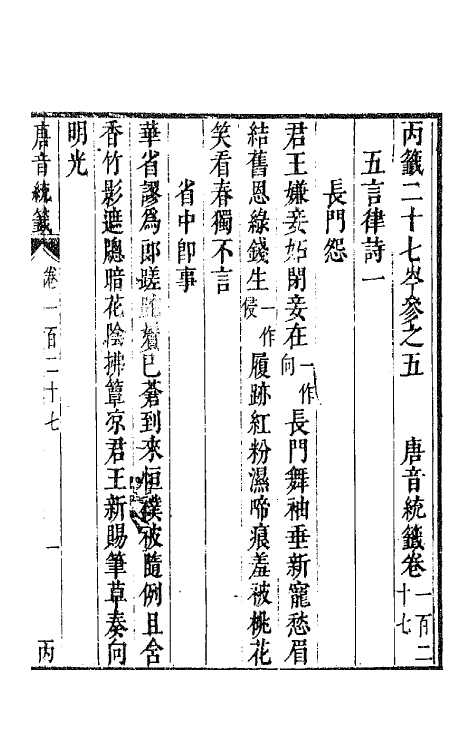 丙籖二十七岑參之五　　唐音統籖卷一百二十七
五言律詩一
長門怨
君王嫌妾妬閉妾在一作向長門舞袖垂新寵愁眉
結舊恩綠錢生一作侵履跡紅粉濕啼痕羞被桃花
笑看春獨不言
省中卽事
華省謬爲郎蹉跎鬢已蒼到來恒襆被隨例且含
香竹影遮牕暗花陰拂簟凉君王新賜筆草奏向
明光
唐音統籖　卷一百二十七　一　丙